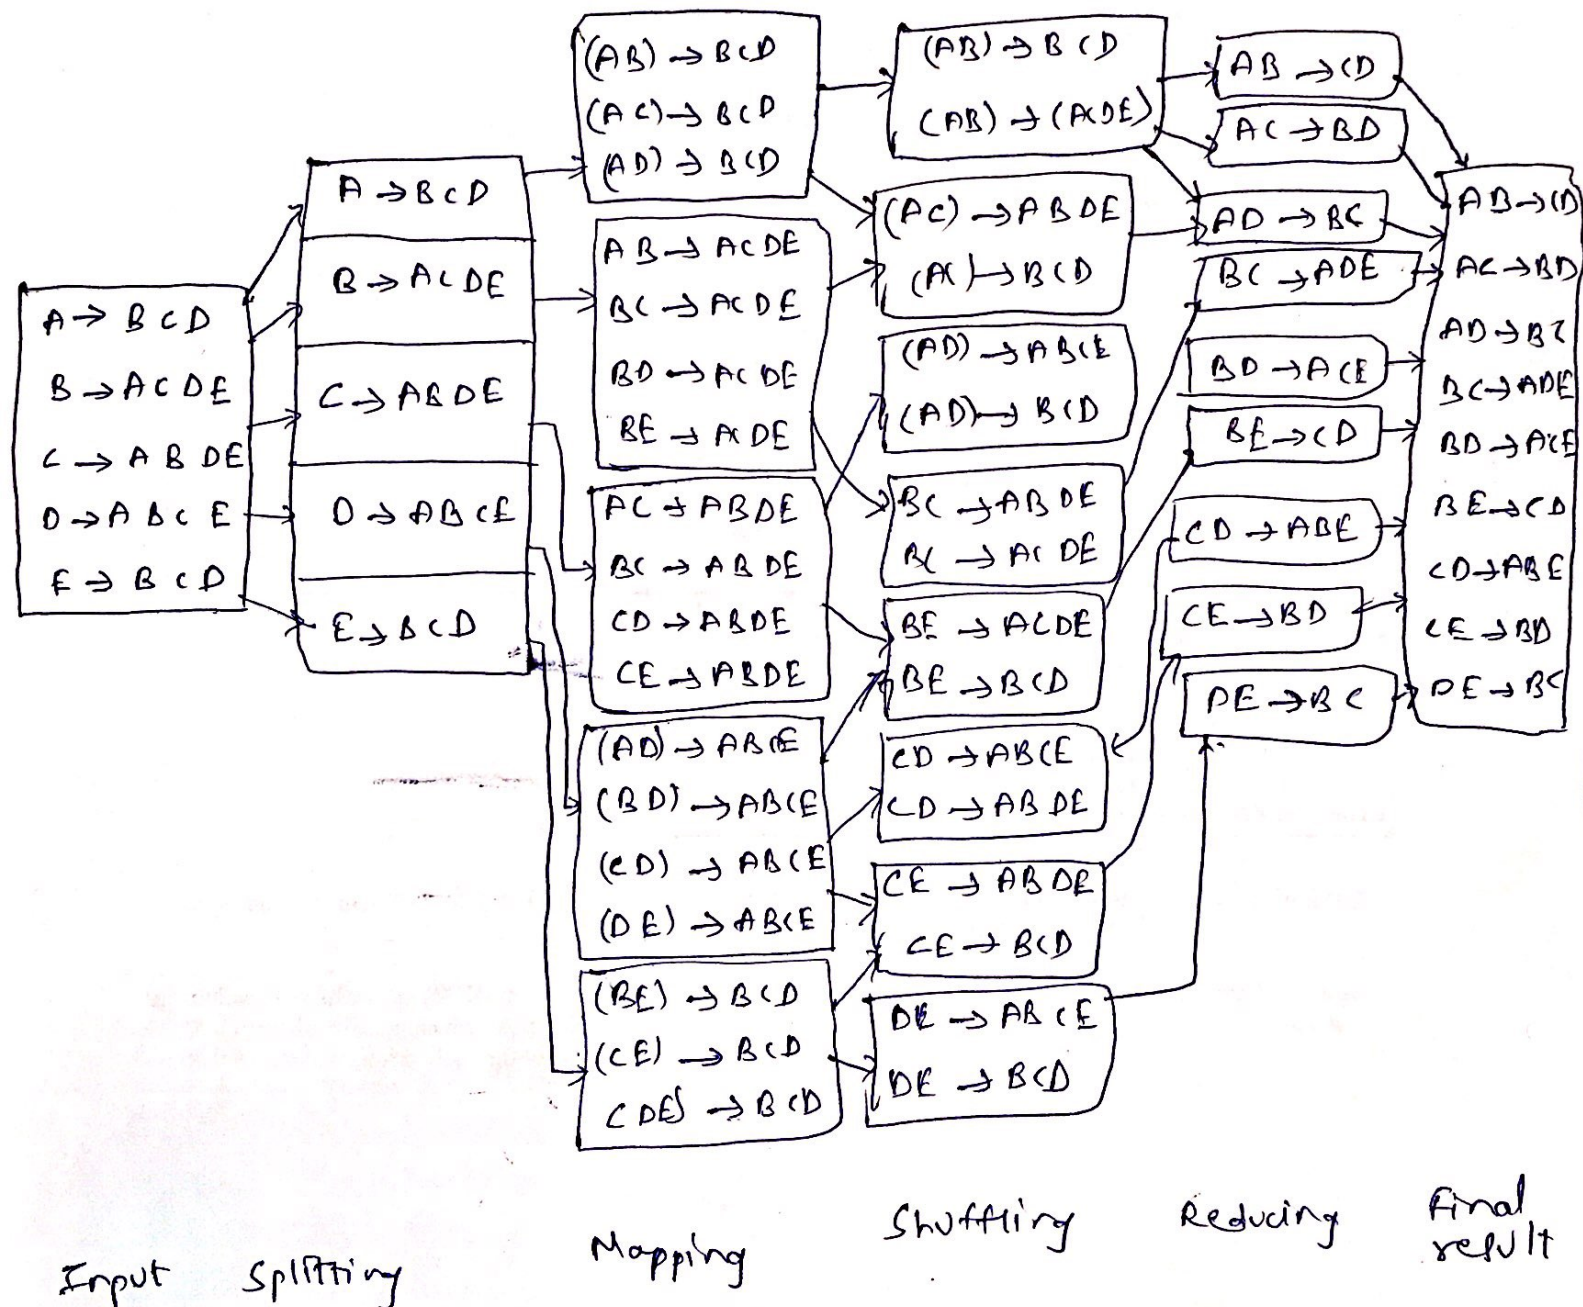 A → B C D
B → A C D E
C → A B D E
D → A B C E
E → B C D
A → B C D
B → A C D E
C → A B D E
D → A B C E
E → B C D
(AB) → B C D
(AC) → B C D
(AD) → B C D
AB → ACDE
BC → ACDE
BD → ACDE
BE → ACDE
AC → ABDE
BC → ABDE
CD → ABDE
CE → ABDE
(AD) → ABCE
(BD) → ABCE
(CD) → ABCE
(DE) → ABCE
(BE) → BCD
(CE) → BCD
(DE) → BCD
(AB) → B C D
(AB) → (ACDE)
(AC) → ABDE
(AC) → BCD
(AD) → ABCE
(AD) → BCD
BC → ABDE
BC → ACDE
BE → ACDE
BE → BCD
CD → ABCE
CD → ABDE
CE → ABDE
CE → BCD
DE → ABCE
DE → BCD
AB → CD
AC → BD
AD → BC
BC → ADE
BD → ACE
BE → CD
CD → ABE
CE → BD
DE → BC
AB → CD
AC → BD
AD → BC
BC → ADE
BD → ACE
BE → CD
CD → ABE
CE → BD
DE → BC
Input
Splitting
Mapping
Shuffling
Reducing
Final
result